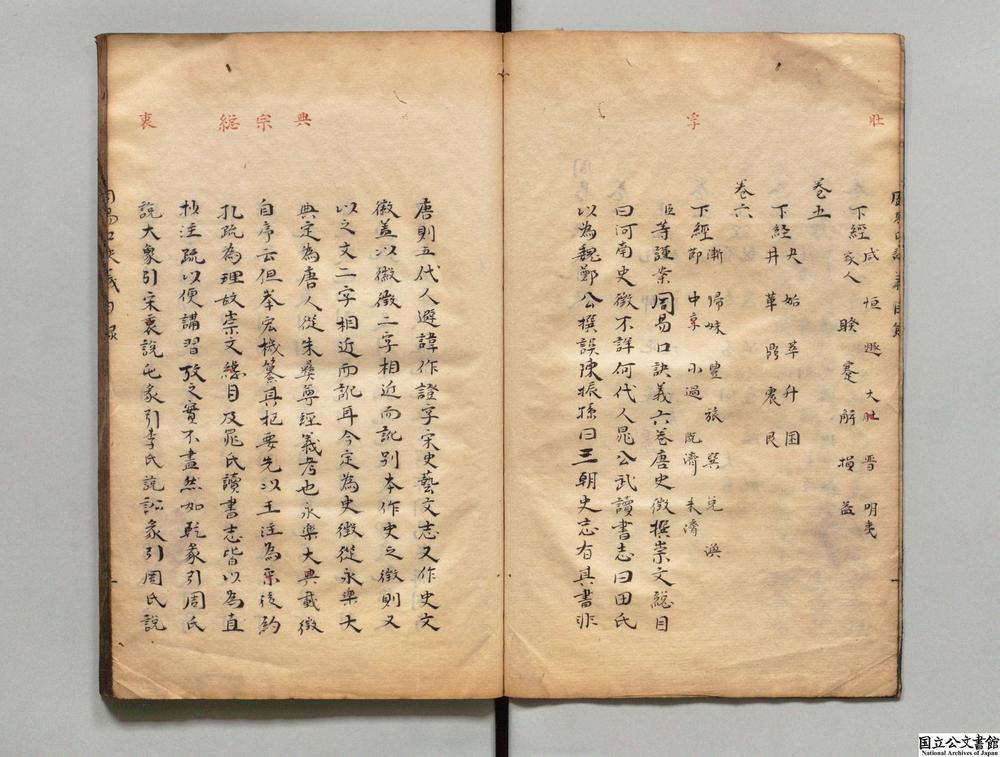 壯
字
下經 咸 恒 遯 大壯 晋 明夷
家人 睽 蹇 解 損 益
卷五
下經 夬 姤 萃 升 困
井 革 鼎 震 艮
卷六
下經 漸 歸妹 豊 旅 巽 兌 渙
節 中孚 小過 既濟 未濟
臣等謹案周易口訣義六卷唐史徵撰崇文総目
曰河南史徵不詳何代人晁公武讀書志曰田氏
以為魏鄭公撰誤陳振孫曰三朝史志有其書非
典
宗
総
衷
唐則五代人避諱作證字宋史藝文志又作史文
徽盖以徽徵二字相近而訛別本作史之徵則又
以之文二字相近而訛耳今定為史徵從永樂大
典定為唐人從朱彝尊經義考也永樂大典載徵
自序云但舉宏機纂其枢要先以王注為宗後約
孔疏為理故崇文総目及晁氏讀書志皆以為直
抄注疏以便講習攷之實不盡然如乾彖引周氏
說大象引宋衷說屯彖引李氏說訟彖引周氏說
国立公文書館
National Archives of Japan